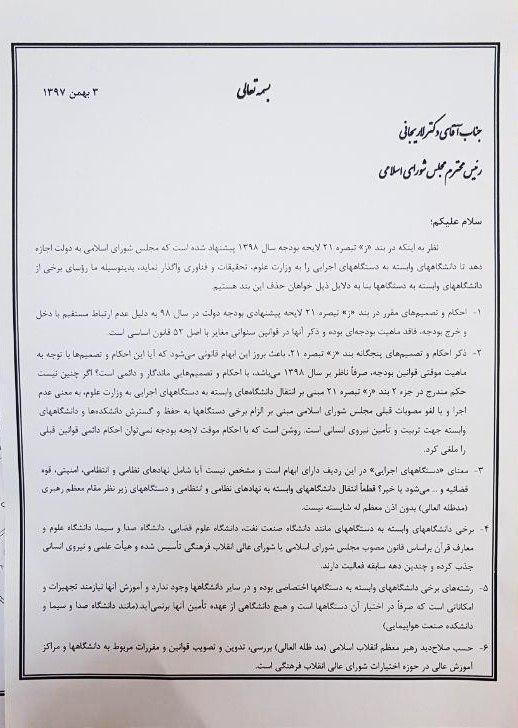 بسمه تعالی
۳ بهمن ۱۳۹۷
جناب آقای دکتر لاریجانی
رئیس محترم مجلس شورای اسلامی
سلام علیکم؛
نظر به اینکه در بند «ز» تبصره ۲۱ لایحه بودجه سال ۱۳۹۸ پیشنهاد شده است که مجلس شورای اسلامی به دولت اجازه
دهد تا دانشگاههای وابسته به دستگاههای اجرایی را به وزارت علوم، تحقیقات و فناوری واگذار نماید، بدینوسیله ما رؤسای برخی از
دانشگاههای وابسته به دستگاهها بنا به دلایل ذیل خواهان حذف این بند هستیم.
۱- احکام و تصمیم‌های مقرر در بند «ز» تبصره ۲۱ لایحه پیشنهادی بودجه دولت در سال ۹۸ به دلیل عدم ارتباط مستقیم با دخل
و خرج بودجه، فاقد ماهیت بودجه‌ای بوده و ذکر آنها در قوانین سنواتی مغایر با اصل ۵۲ قانون اساسی است.
۲- ذکر احکام و تصمیم‌های پنجگانه بند «ز» تبصره ۲۱، باعث بروز این ابهام قانونی می‌شود که آیا این احکام و تصمیم‌ها با توجه به
ماهیت موقتی قوانین بودجه، صرفاً ناظر بر سال ۱۳۹۸ می‌باشد، یا احکام و تصمیم‌هایی ماندگار و دائمی است؟ اگر چنین نیست
حکم مندرج در جزء ۲ بند «ز» تبصره ۲۱ مبنی بر انتقال دانشگاه‌های وابسته به دستگاههای اجرایی به وزارت علوم، به معنی عدم
اجرا و یا لغو مصوبات قبلی مجلس شورای اسلامی مبنی بر الزام برخی دستگاهها به حفظ و گسترش دانشکده‌ها و دانشگاههای
وابسته جهت تربیت و تأمین نیروی انسانی است. روشن است که با احکام موقت لایحه بودجه نمی‌توان احکام دائمی قوانین قبلی
را ملغی کرد.
۳- معنای «دستگاههای اجرایی» در این ردیف دارای ابهام است و مشخص نیست آیا شامل نهادهای نظامی و انتظامی، امنیتی، قوه
قضائیه و ... می‌شود یا خیر؟ قطعاً انتقال دانشگاههای وابسته به نهادهای نظامی و انتظامی و دستگاههای زیر نظر مقام معظم رهبری
(مدظله العالی) بدون اذن معظم له شایسته نیست.
۴- برخی دانشگاههای وابسته به دستگاههای مانند دانشگاه صنعت نفت، دانشگاه علوم قضایی، دانشگاه صدا و سیما، دانشگاه علوم و
معارف قرآن براساس قانون مصوب مجلس شورای اسلامی یا شورای عالی انقلاب فرهنگی تأسیس شده و هیأت علمی و نیروی انسانی
جذب کرده و چندین دهه سابقه فعالیت دارند.
۵- رشته‌های برخی دانشگاههای وابسته به دستگاهها اختصاصی بوده و در سایر دانشگاهها وجود ندارد و آموزش آنها نیازمند تجهیزات و
امکاناتی است که صرفاً در اختیار آن دستگاهها است و هیچ دانشگاهی از عهده تأمین آنها برنمی‌آید(مانند دانشگاه صدا و سیما و
دانشکده صنعت هواپیمایی)
۶- حسب صلاح‌دید رهبر معظم انقلاب اسلامی (مد ظله العالی) بررسی، تدوین و تصویب قوانین و مقررات مربوط به دانشگاهها و مراکز
آموزش عالی در حوزه اختیارات شورای عالی انقلاب فرهنگی است.